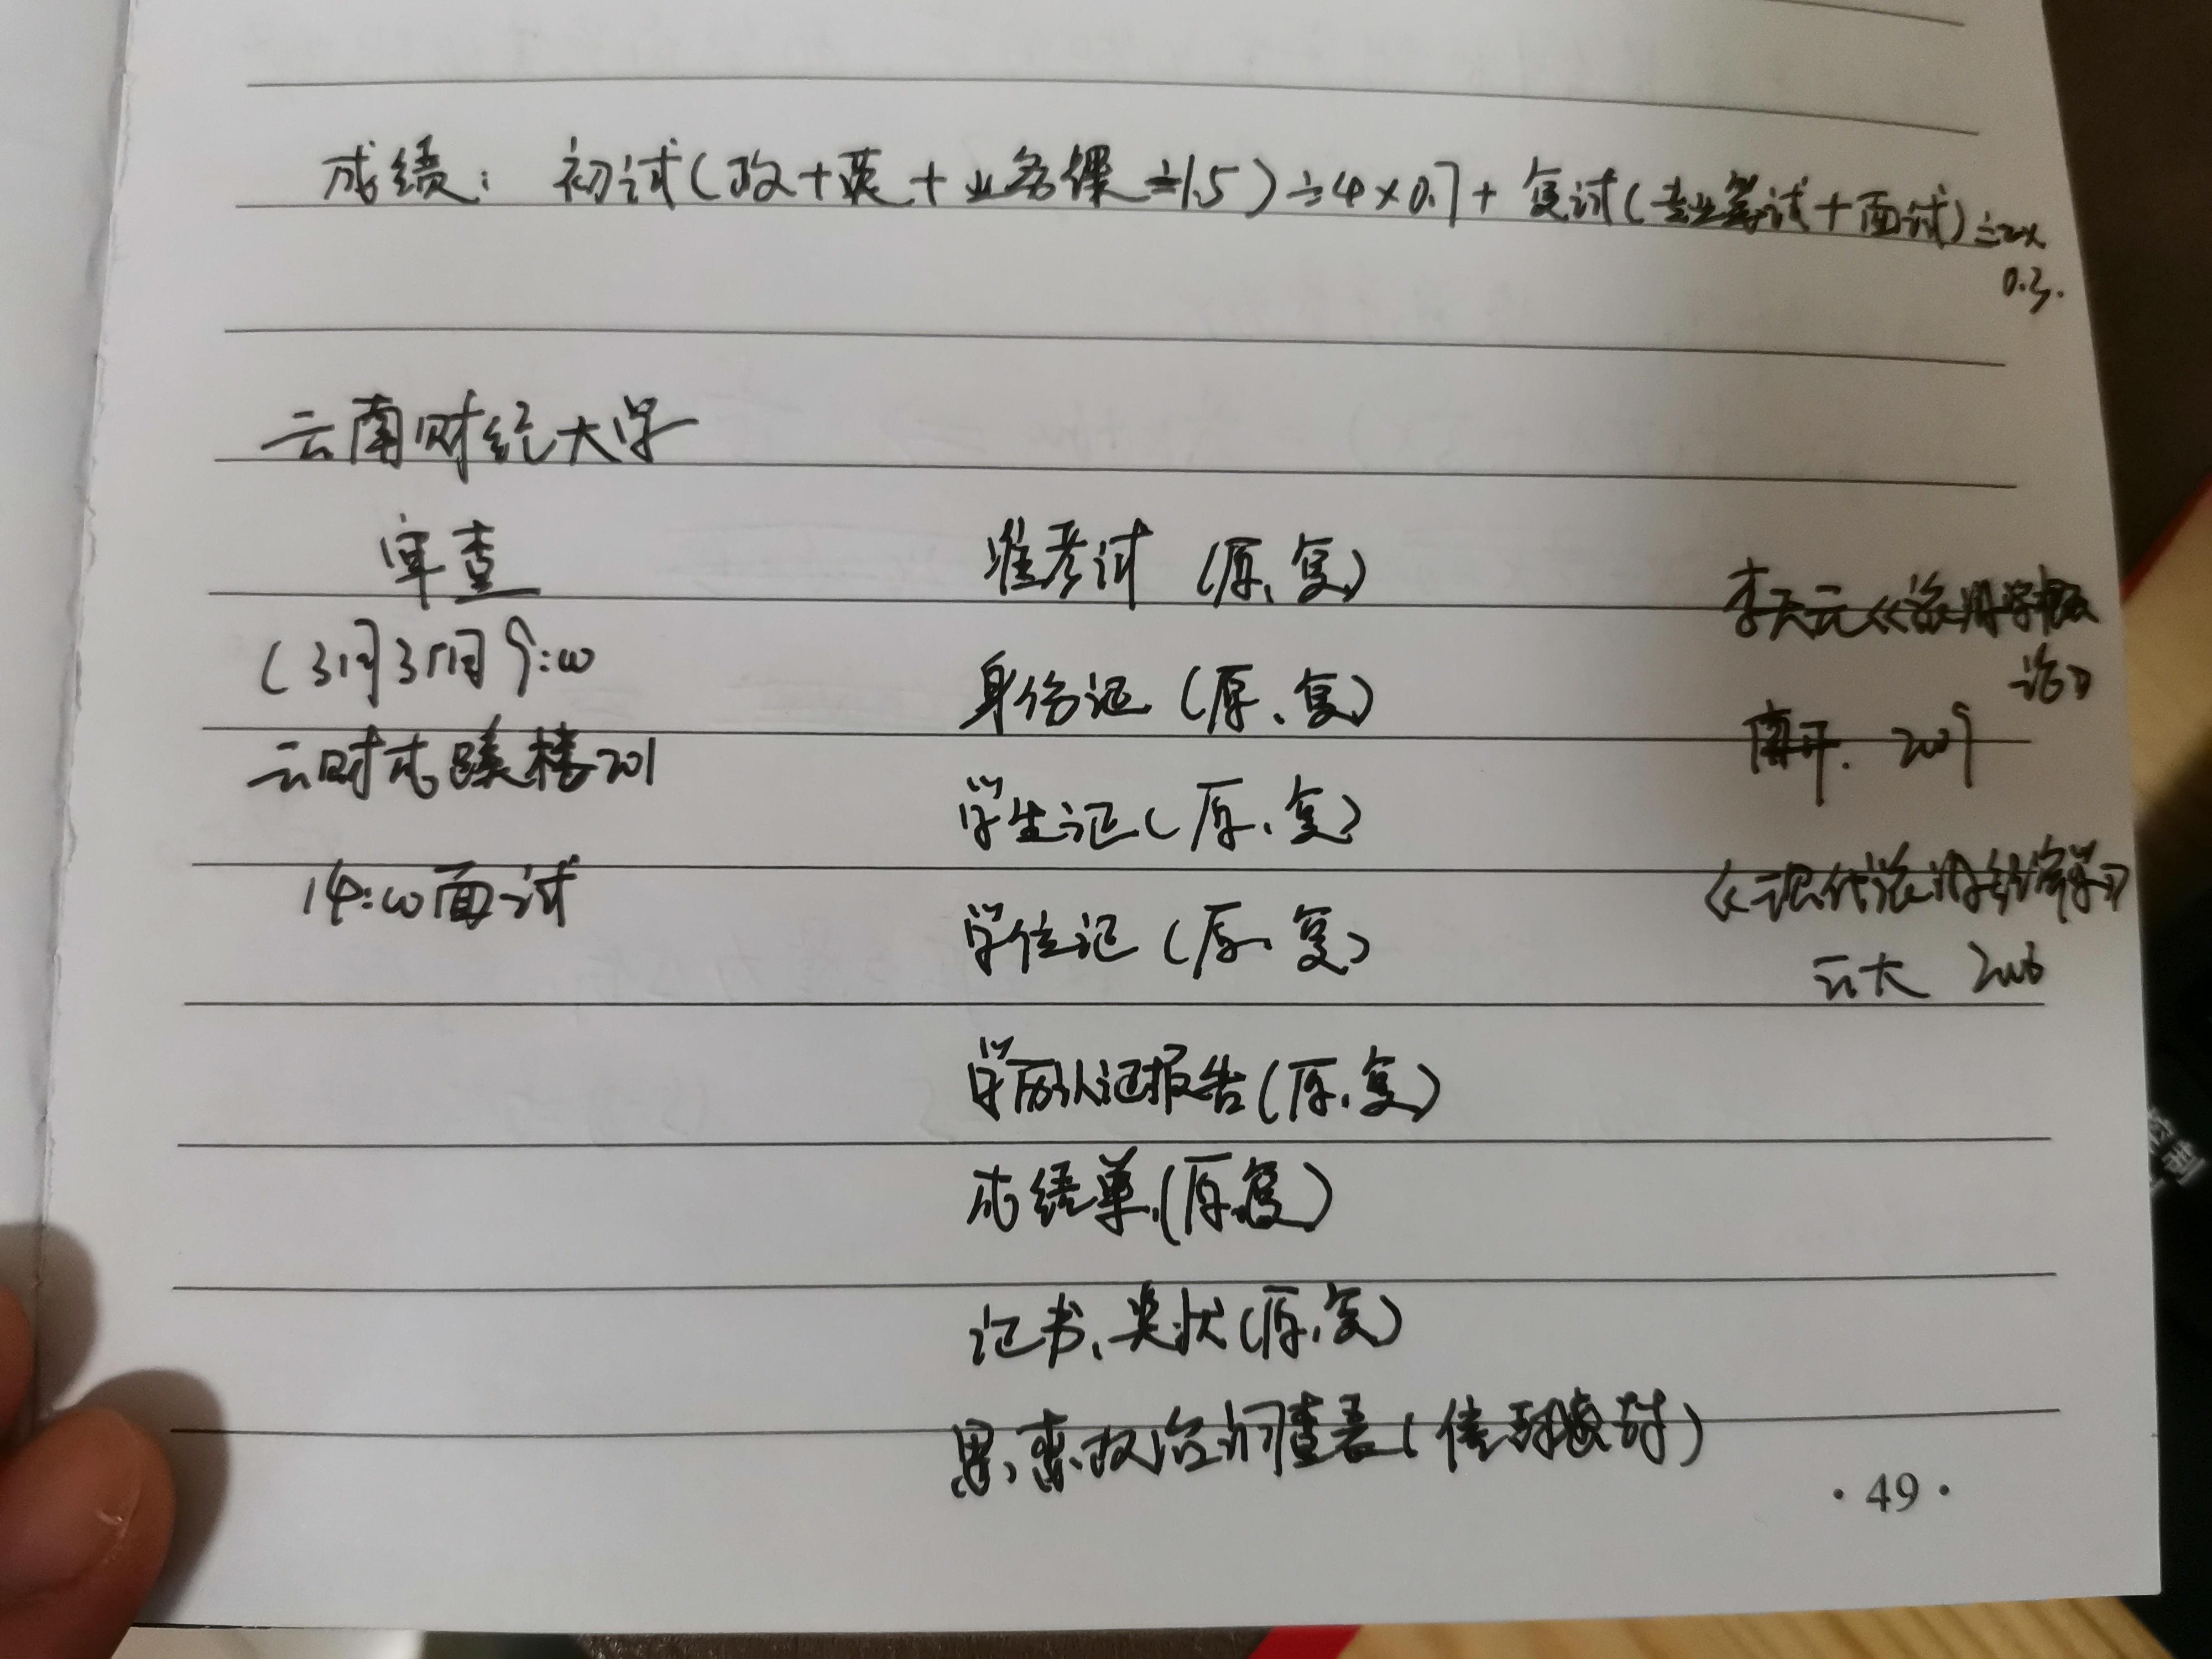 成绩: 初试(政+英+业务课÷1.5)÷4×0.7+复试(专业笔试+面试)÷2×
0.3.
云南财经大学
审查
(3月31日9:00
云财成蹊楼201
14:00面试
准考试 (原、复)
身份证 (原、复)
学生证 (原、复)
学位证 (原、复)
学历认证报告(原、复)
成绩单(原、复)
证书、奖状(原、复)
思想政治调查表(
李天元《旅游学概
论》
南开. 2009
《现代旅游经济学》
云大 2006
·49·